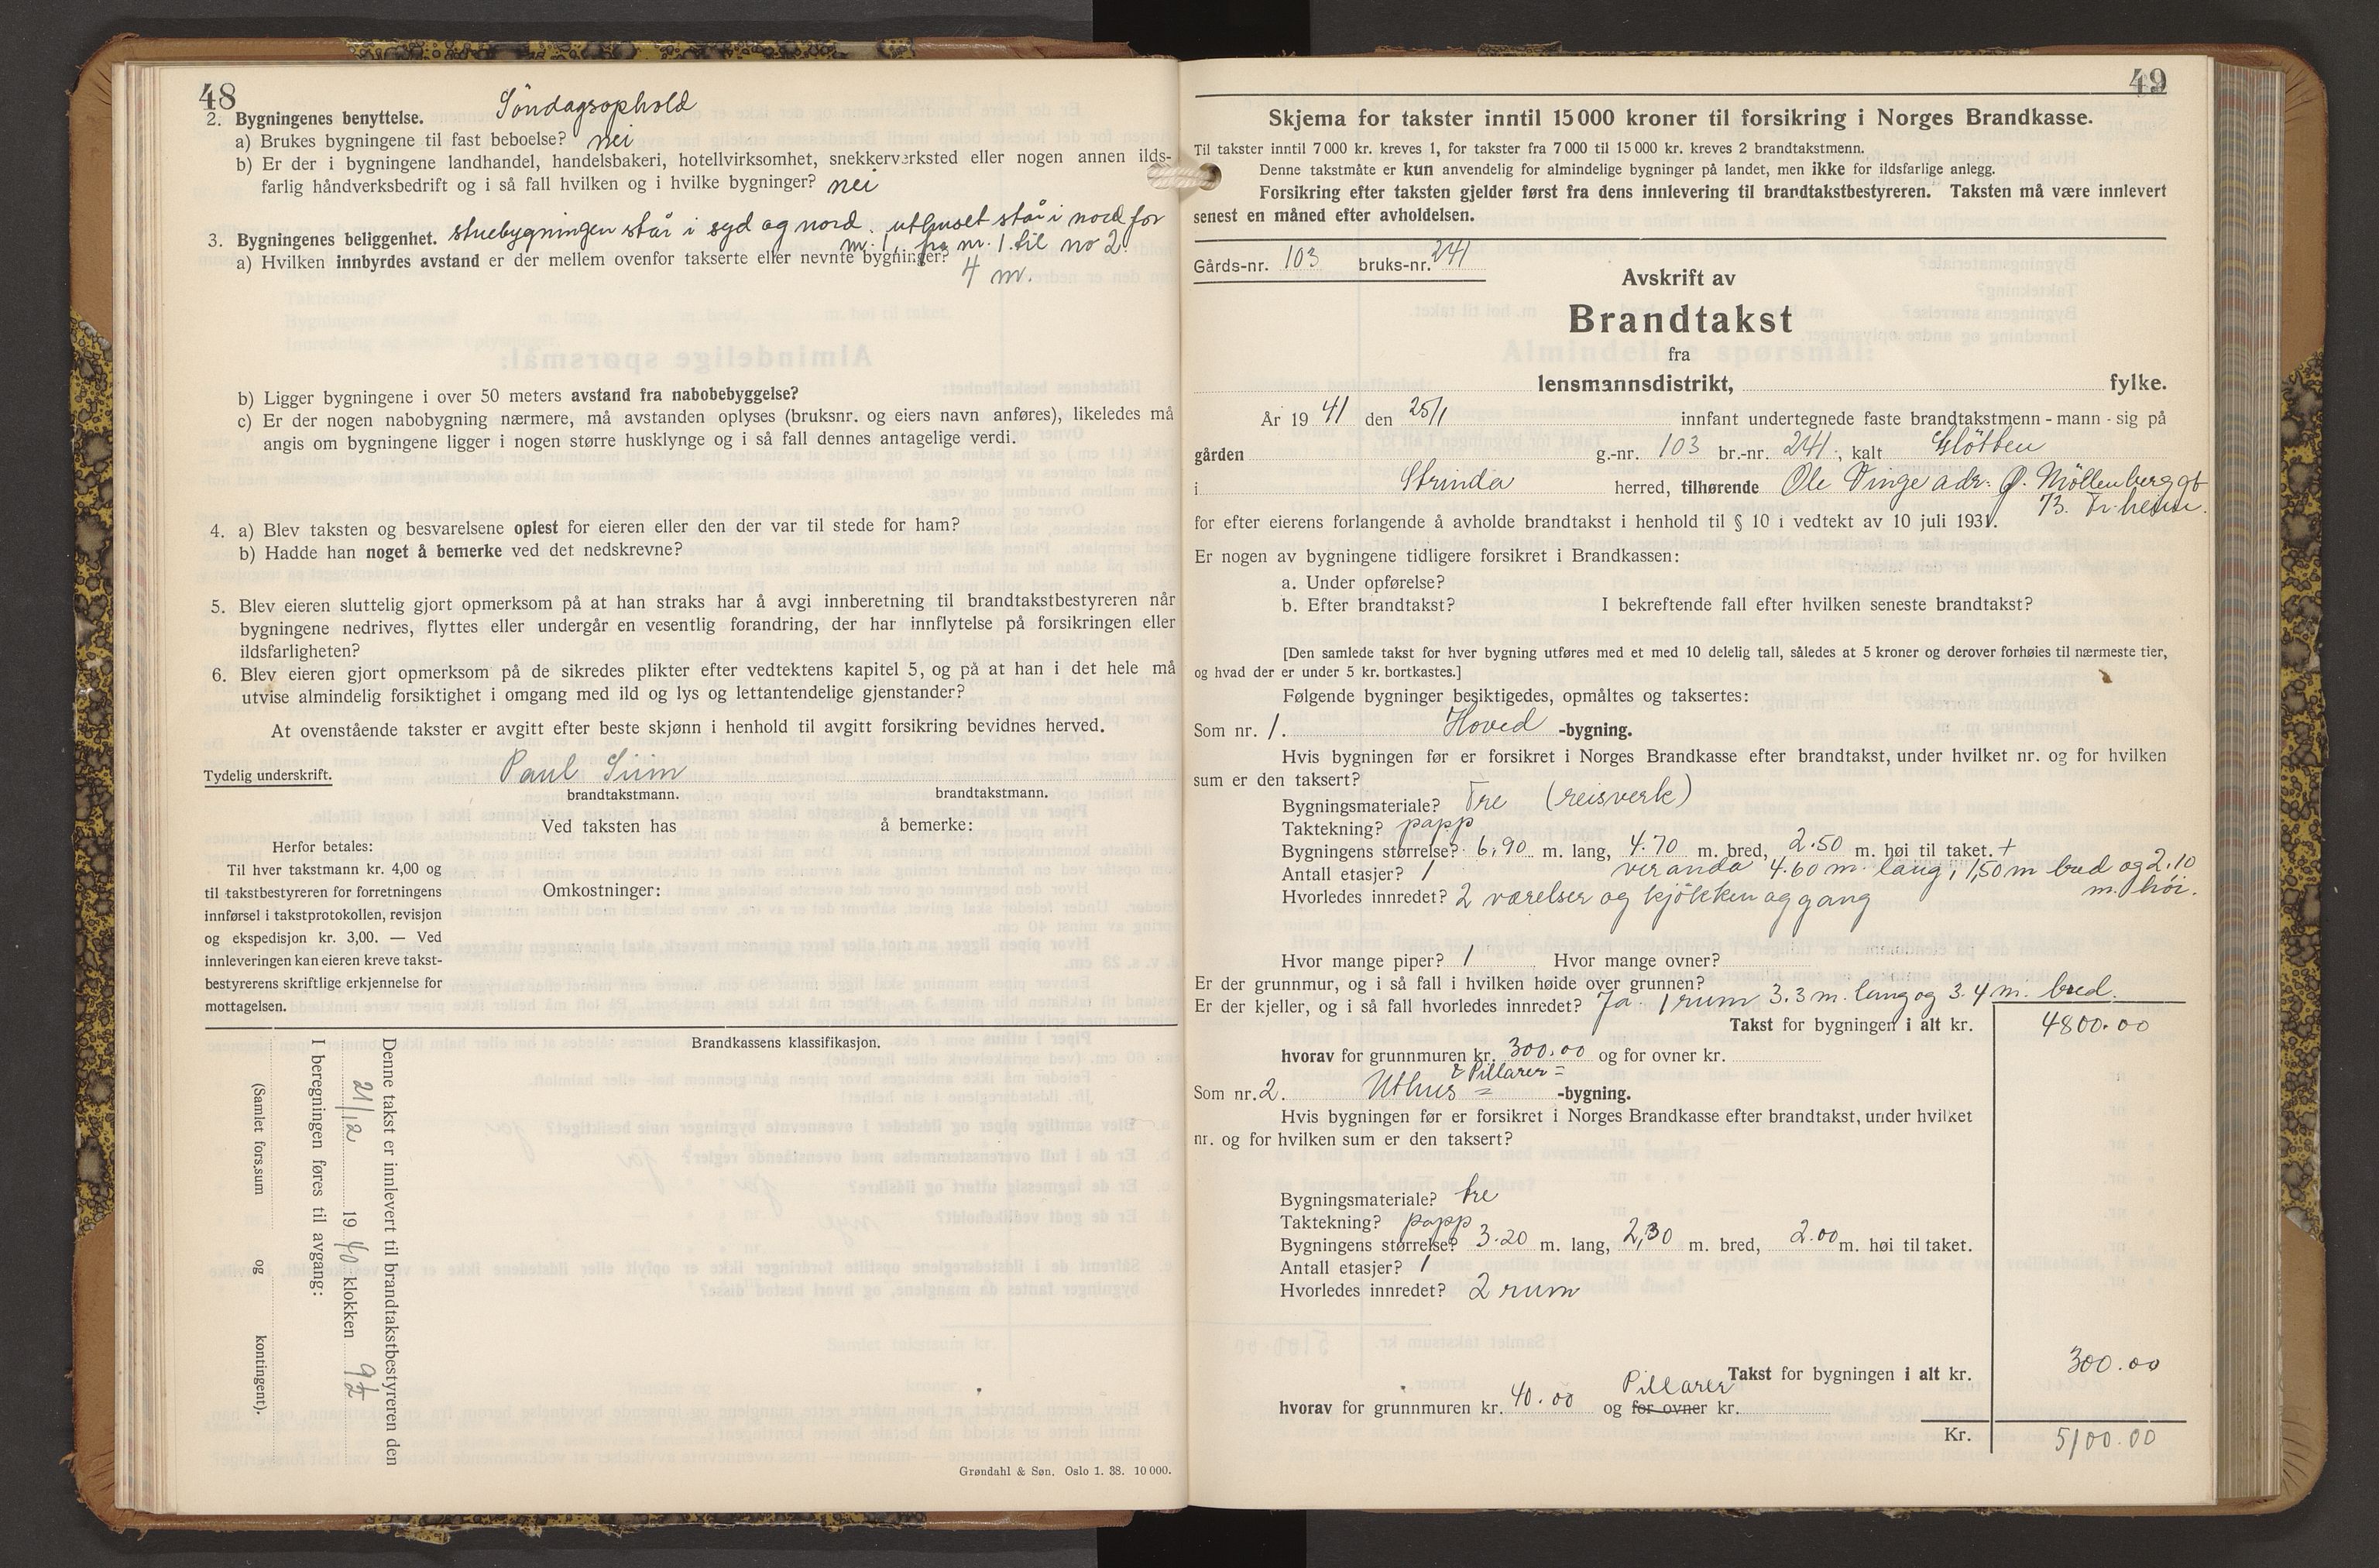 48
2. Bygningenes benyttelse. Söndagsophold
a) Brukes bygningene til fast beboelse? nei
b) Er der i bygningene landhandel, handelsbakeri, hotellvirksomhet, snekkerverksted eller nogen annen ilds-
farlig håndverksbedrift og i så fall hvilken og i hvilke bygninger? nei
3. Bygningenes beliggenhet. stuebygningen står i syd og nord. uthuset står i nord for
nr. 1. fra nr. 1. til no 2.
a) Hvilken innbyrdes avstand er der mellem ovenfor takserte eller nevnte bygninger?
4 m.
b) Ligger bygningene i over 50 meters avstand fra nabobebyggelse?
c) Er der nogen nabobygning nærmere, må avstanden oplyses (bruksnr. og eiers navn anføres), likeledes må
angis om bygningene ligger i nogen større husklynge og i så fall dennes antagelige verdi.
4. a) Blev taksten og besvarelsene oplest for eieren eller den der var til stede for ham?
b) Hadde han noget å bemerke ved det nedskrevne?
5. Blev eieren sluttelig gjort opmerksom på at han straks har å avgi innberetning til brandtakstbestyreren når
bygningene nedrives, flyttes eller undergår en vesentlig forandring, der har innflytelse på forsikringen eller
ildsfarligheten?
6. Blev eieren gjort opmerksom på de sikredes plikter efter vedtektens kapitel 5, og på at han i det hele må
utvise almindelig forsiktighet i omgang med ild og lys og lettantendelige gjenstander?
At ovenstående takster er avgitt efter beste skjønn i henhold til avgitt forsikring bevidnes herved.
Tydelig underskrift. Paul
brandtakstmann. brandtakstmann.
Ved taksten has å bemerke:
Herfor betales:
Til hver takstmann kr. 4,00 og
til takstbestyreren for forretningens
innførsel i takstprotokollen, revisjon
og ekspedisjon kr. 3,00. — Ved
innleveringen kan eieren kreve takst-
bestyrerens skriftlige erkjennelse for
mottagelsen.
Omkostninger:
Brandkassens klassifikasjon.
Denne takst er innlevert til brandtakstbestyreren den
21/12 19 40 klokken 9½
I beregningen føres til avgang:
(Samlet fors.sum og kontingent).
Grøndahl & Søn. Oslo 1. 38. 10 000.
49
Skjema for takster inntil 15 000 kroner til forsikring i Norges Brandkasse.
Til takster inntil 7 000 kr. kreves 1, for takster fra 7 000 til 15 000 kr. kreves 2 brandtakstmenn.
Denne takstmåte er kun anvendelig for almindelige bygninger på landet, men ikke for ildsfarlige anlegg.
Forsikring efter taksten gjelder først fra dens innlevering til brandtakstbestyreren. Taksten må være innlevert
senest en måned efter avholdelsen.
Gårds-nr. 103 bruks-nr. 241
Avskrift av
Brandtakst
fra
lensmannsdistrikt, fylke.
År 19 41 den 25/1 innfant undertegnede faste brandtakstmenn - mann - sig på
gården g.-nr. 103 br.-nr. 241, kalt
i Strinda herred, tilhørende Ole Vinge adr: Ø. Möllenberg gt
73. Tr.heim.
for efter eierens forlangende å avholde brandtakst i henhold til § 10 i vedtekt av 10 juli 1931.
Er nogen av bygningene tidligere forsikret i Brandkassen:
a. Under opførelse?
b. Efter brandtakst? I bekreftende fall efter hvilken seneste brandtakst?
[Den samlede takst for hver bygning utføres med et med 10 delelig tall, således at 5 kroner og derover forhøies til nærmeste tier,
og hvad der er under 5 kr. bortkastes.]
Følgende bygninger besiktigedes, opmåltes og taksertes:
Som nr. 1. Hoved -bygning.
Hvis bygningen før er forsikret i Norges Brandkasse efter brandtakst, under hvilket nr. og for hvilken
sum er den taksert?
Bygningsmateriale? Tre (reisverk)
Taktekning? papp
Bygningens størrelse? 6.90 m. lang, 4.70 m. bred, 2.50 m. høi til taket. +
Antall etasjer? 1 veranda 4.60 m. lang, 1,50 m bred og 2.10
m. høi.
Hvorledes innredet? 2 værelser og kjökken og gang
Hvor mange piper? 1 Hvor mange ovner?
Er der grunnmur, og i så fall i hvilken høide over grunnen?
Er der kjeller, og i så fall hvorledes innredet? Ja. 1 rum 3.3 m. lang og 3.4 m. bred.
Takst for bygningen i alt kr. 4800.00
hvorav for grunnmuren kr. 300.00 og for ovner kr.
& Pillarer =
Som nr. 2. Uthus = -bygning.
Hvis bygningen før er forsikret i Norges Brandkasse efter brandtakst, under hvilket
nr. og for hvilken sum er den taksert?
Bygningsmateriale? tre
Taktekning? papp
Bygningens størrelse? 3.20 m. lang, 2,30 m. bred, 2.00 m. høi til taket.
Antall etasjer? 1
Hvorledes innredet? 2 rum
Takst for bygningen i alt kr. 300.00
Pillarer
hvorav for grunnmuren kr. 40.00 og for ovner kr.
Kr. 5100.00